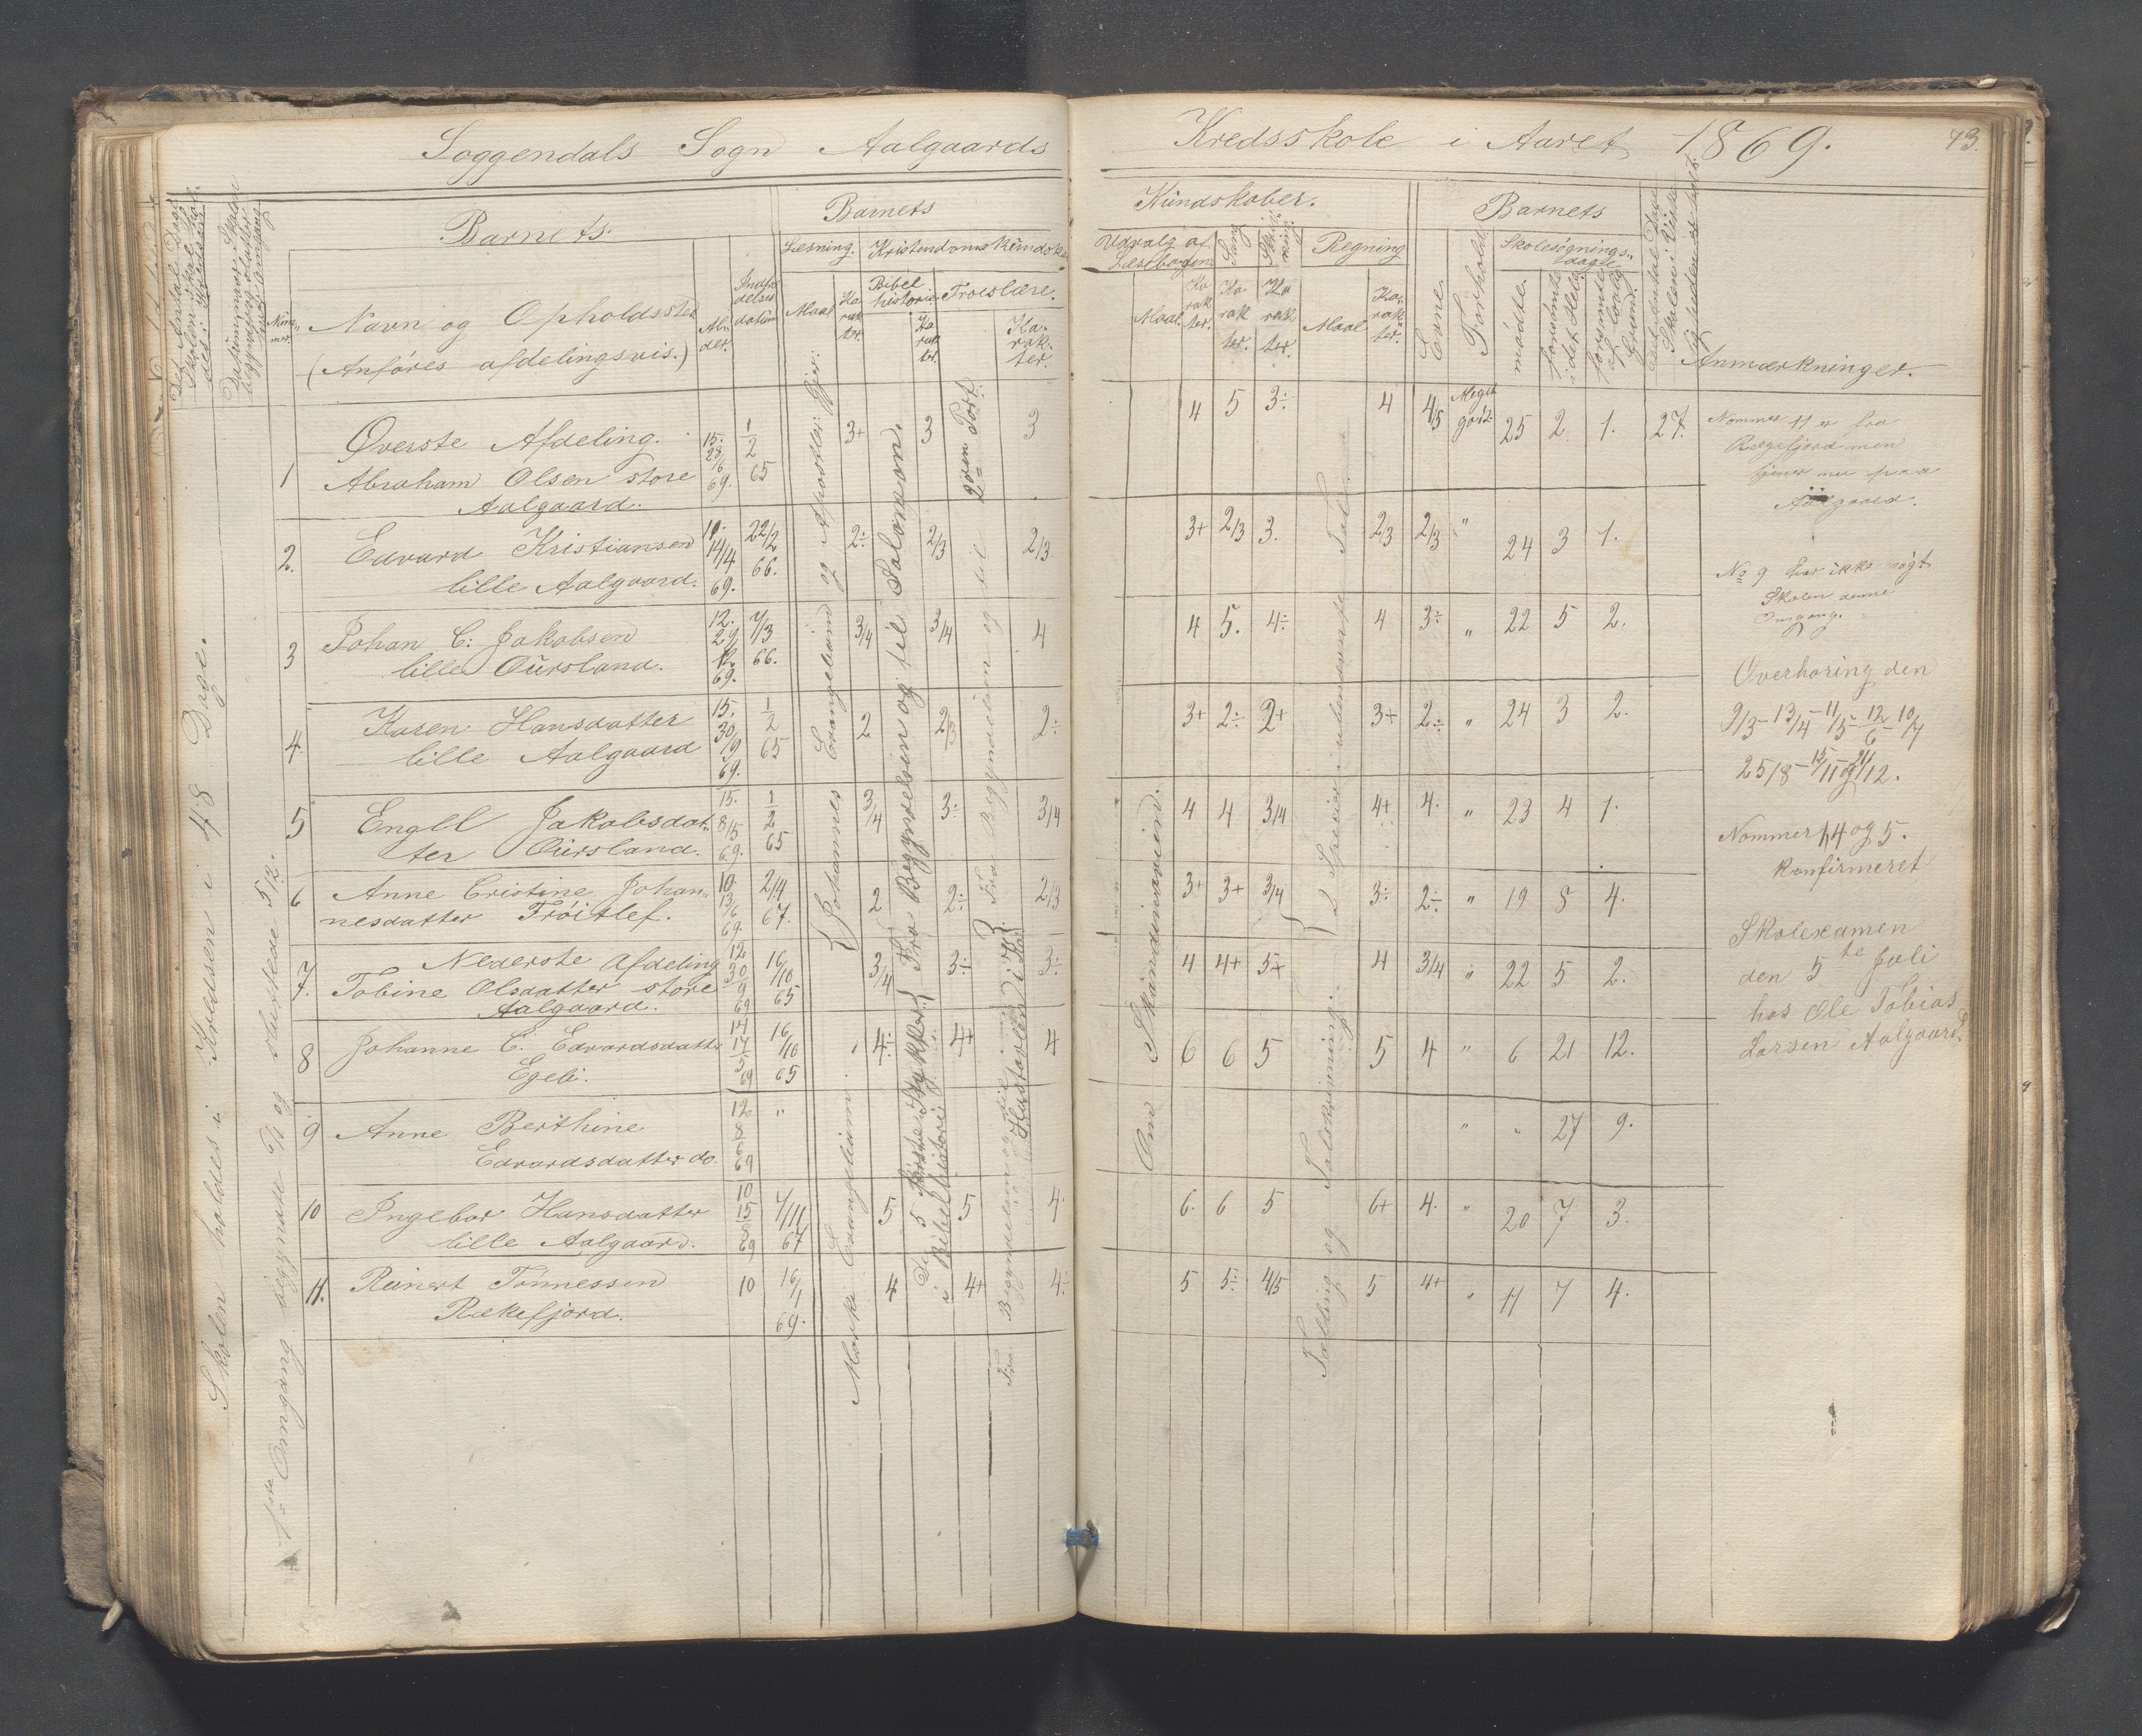 Soggendals Sogn Aalgaards Kredsskole i Aaret 1869.
73.
Barnets
Barnets
Kundskaber.
Barnets
Læsning. Kristendomskundsk
Bibel
historie
Troeslære.
Udvalg af
Læsebogen
Sang
Regning
Evne.
Forhold
Skolesøgnings-
dage
mødte.
forsømte
i det Hele
forsømte
af lovlig
Grund.
Nom-
mer.
Navn og Opholdssted
(Anføres afdelingsvis.)
Al-
der.
Indtræ-
delses
datum
Maal
Ka-
rak-
ter.
Ka-
rak-
ter.
Maal
Ka
rak
ter.
Ka
rak
ter.
Ka
rak
ter.
Maal
Ka-
rak-
ter.
Anmærkninger.
Skolen holdes i Kredsen i 48 Dage.
1ste Omgang begyndte og sluttede 5/2.
Øverste Afdeling.
1 Abraham Olsen store
Aalgaard.
15. 28/6 69. 1/2 65 3+ 3 3 4 5 3÷ 4 4/5 Meget god. 25 2 1. 27.
2. Edvard Kristiansen
lille Aalgaard.
14/4 69. 22/2 66. 2÷ 2/3 2/3 3+ 2/3 3. 2/3 2/3 " 24 3 1.
3 Johan C: Jakobsen
lille Oursland.
12. 69. 7/3 66. 3/4 3/4 4 4 5. 4÷ 4 3÷ " 22 5 2.
4. Karen Hansdatter
lille Aalgaard
15. 30/9 69. 1/2 65 2 2/3 2÷ 3+ 2÷ 2+ 3+ 2÷ " 24 3 2.
5 Engel Jakobsdat-
ter Oursland.
15. 8/5 69. 1/2 65 3/4 3÷ 3/4 4 4 3/4 4+ 4. " 23 4 1.
6 Anne Cristine Johan-
nesdatter Frøitlef.
10. 13/6 69. 2/4 67. 2 2÷ 2/3 3+ 3+ 3/4 3÷ 2÷ " 19 8 4.
Nederste Afdeling
7. Tobine Olsdatter store
Aalgaard.
12 30/9 69 16/10 65 3/4 3÷ 3÷ 4 4+ 5+ 4 3/4 " 22 5 2.
8 Johanne C. Edvardsdatter
Egeli.
14 69 16/10 65 4÷ 4+ 4 6 6 5 5 4 " 6 21 12.
9 Anne Berthine
Edvardsdatter do.
12 69 " " " 27 9.
10 Ingebor Hansdatter
lille Aalgaard.
10 15 69 7/11 67 5 5 4. 6. 6 5 6+ 4. " 20 7 3.
11. Reinert Tønnessen
Rækefjord.
10 16/1 69. 4 4+ 4÷ 5 5÷ 4/5 5 4+ " 11 7 4.
Johannes Evangelium og Apostler: Gjer:
Fra Begyndelsen og til Salomon.
Fra Begyndelsen og til 2den Part:
Marki Evangelium.
De 5 første Stykker
i Bibelhistorie
Fra Begyndelsen og til
Hustavlen i
Om Skandinavien.
2 Species i ubenævnte Tal.
Tælling og Talskrivning.
Nommer 11 er fra
Rægefjord men
tjener nu paa
Aalgaard.
No 9 har ikke søgt
Skolen denne
Omgang.
Overhøring den
9/3 - 13/4 - 11/5 - 12/6 - 10/7
25/8 - 15/11 og 21/12.
Nommer 1, 4 og 5.
konfirmeret
Skolexamen
den 5te Juli
hos Ole Tobias
Larsen Aalgaard.